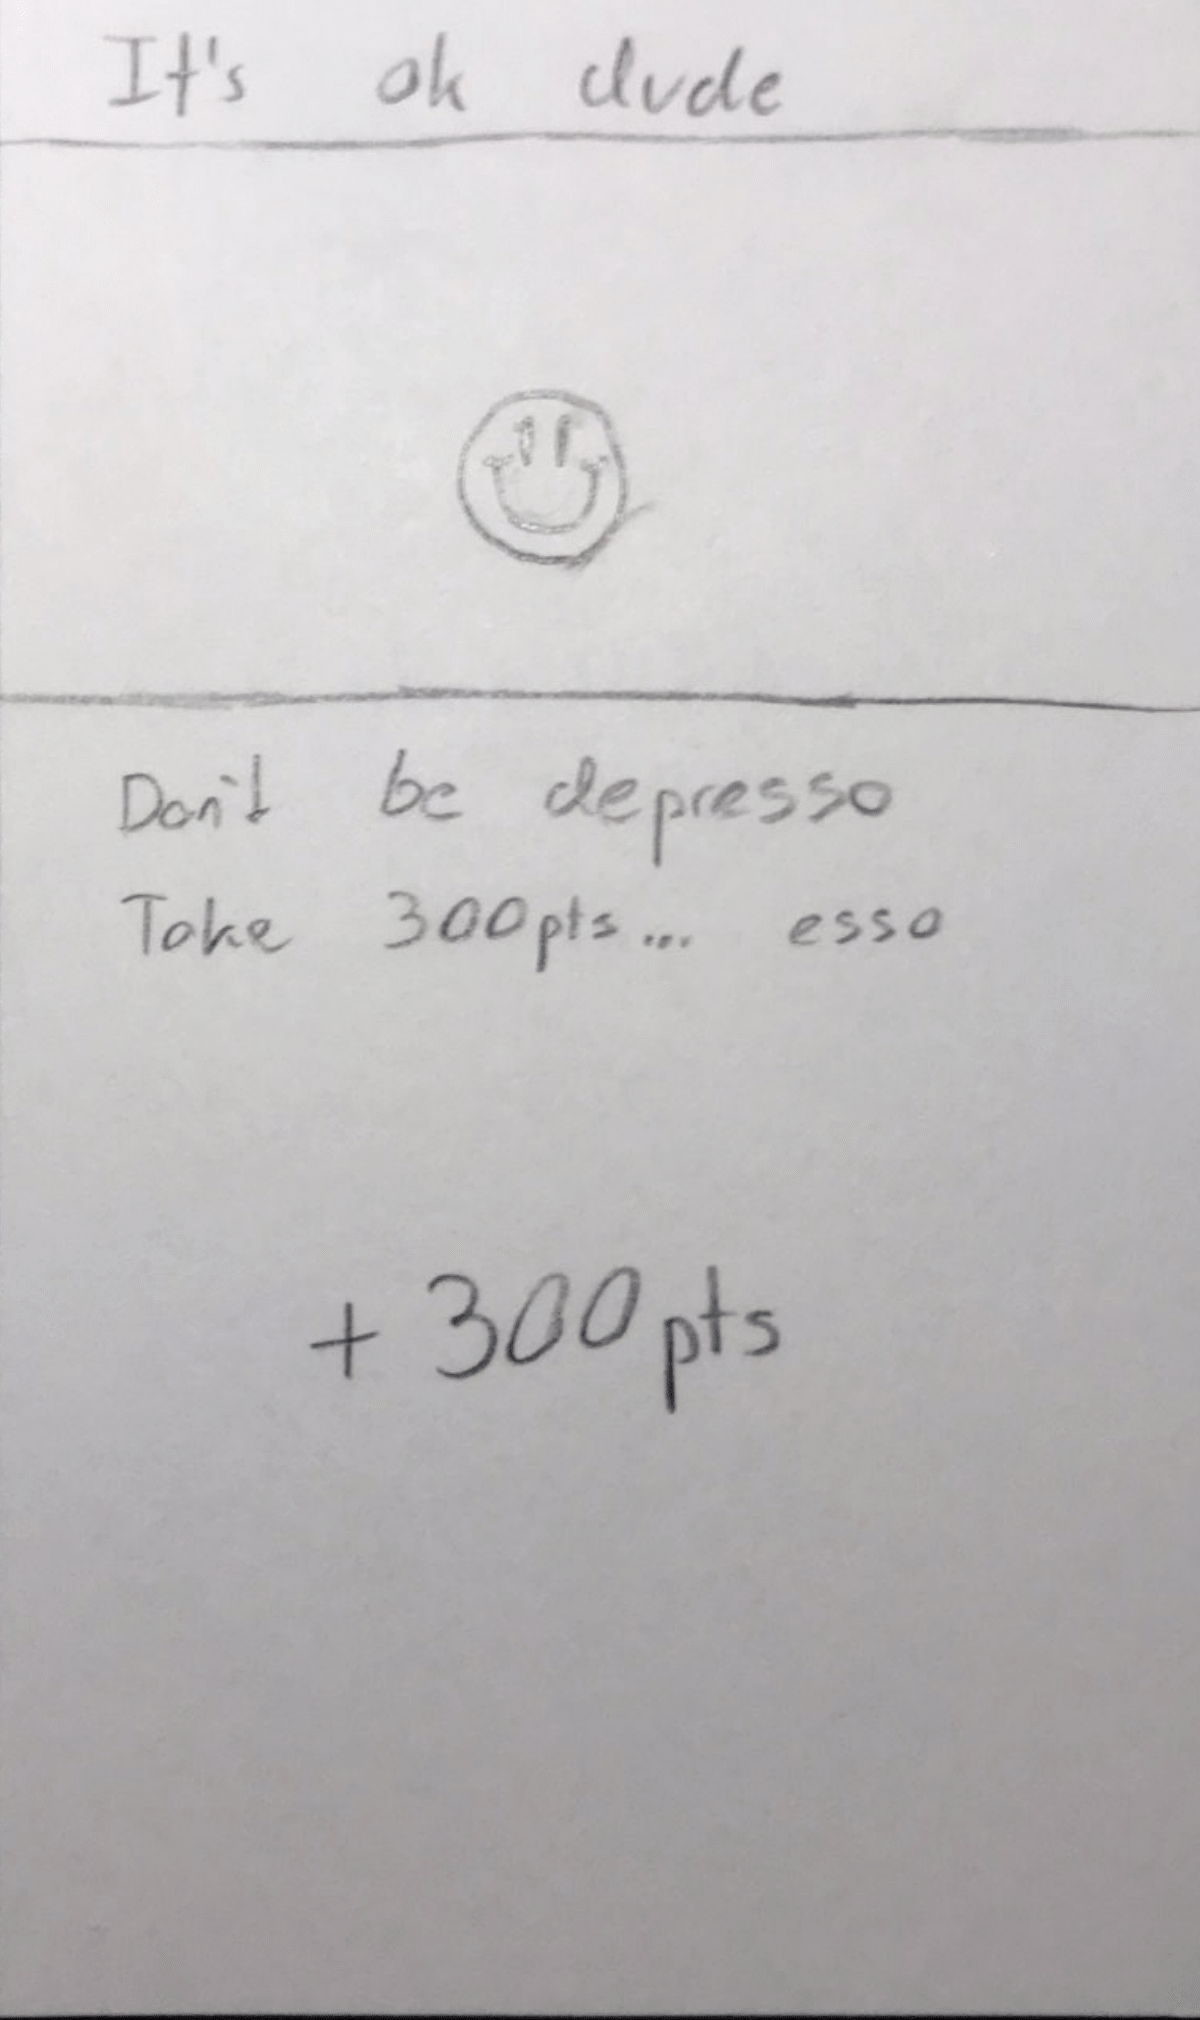 It's ok dude
Don't be depresso
Take 300pts... esso
+ 300pts